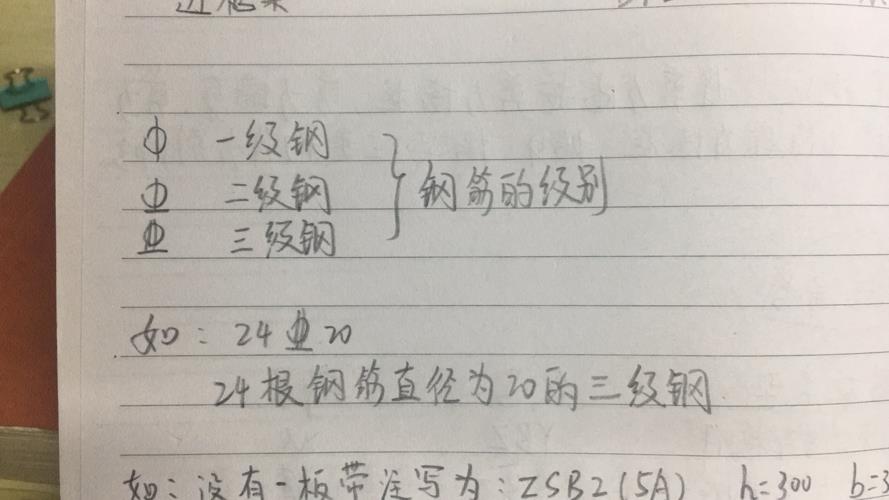 Φ 一级钢
Φ 二级钢 } 钢筋的级别
Φ 三级钢
如：24Φ20
24根钢筋直径为20的三级钢
如：没有一板带注写为：ZSB2(5A) h=300 b=3